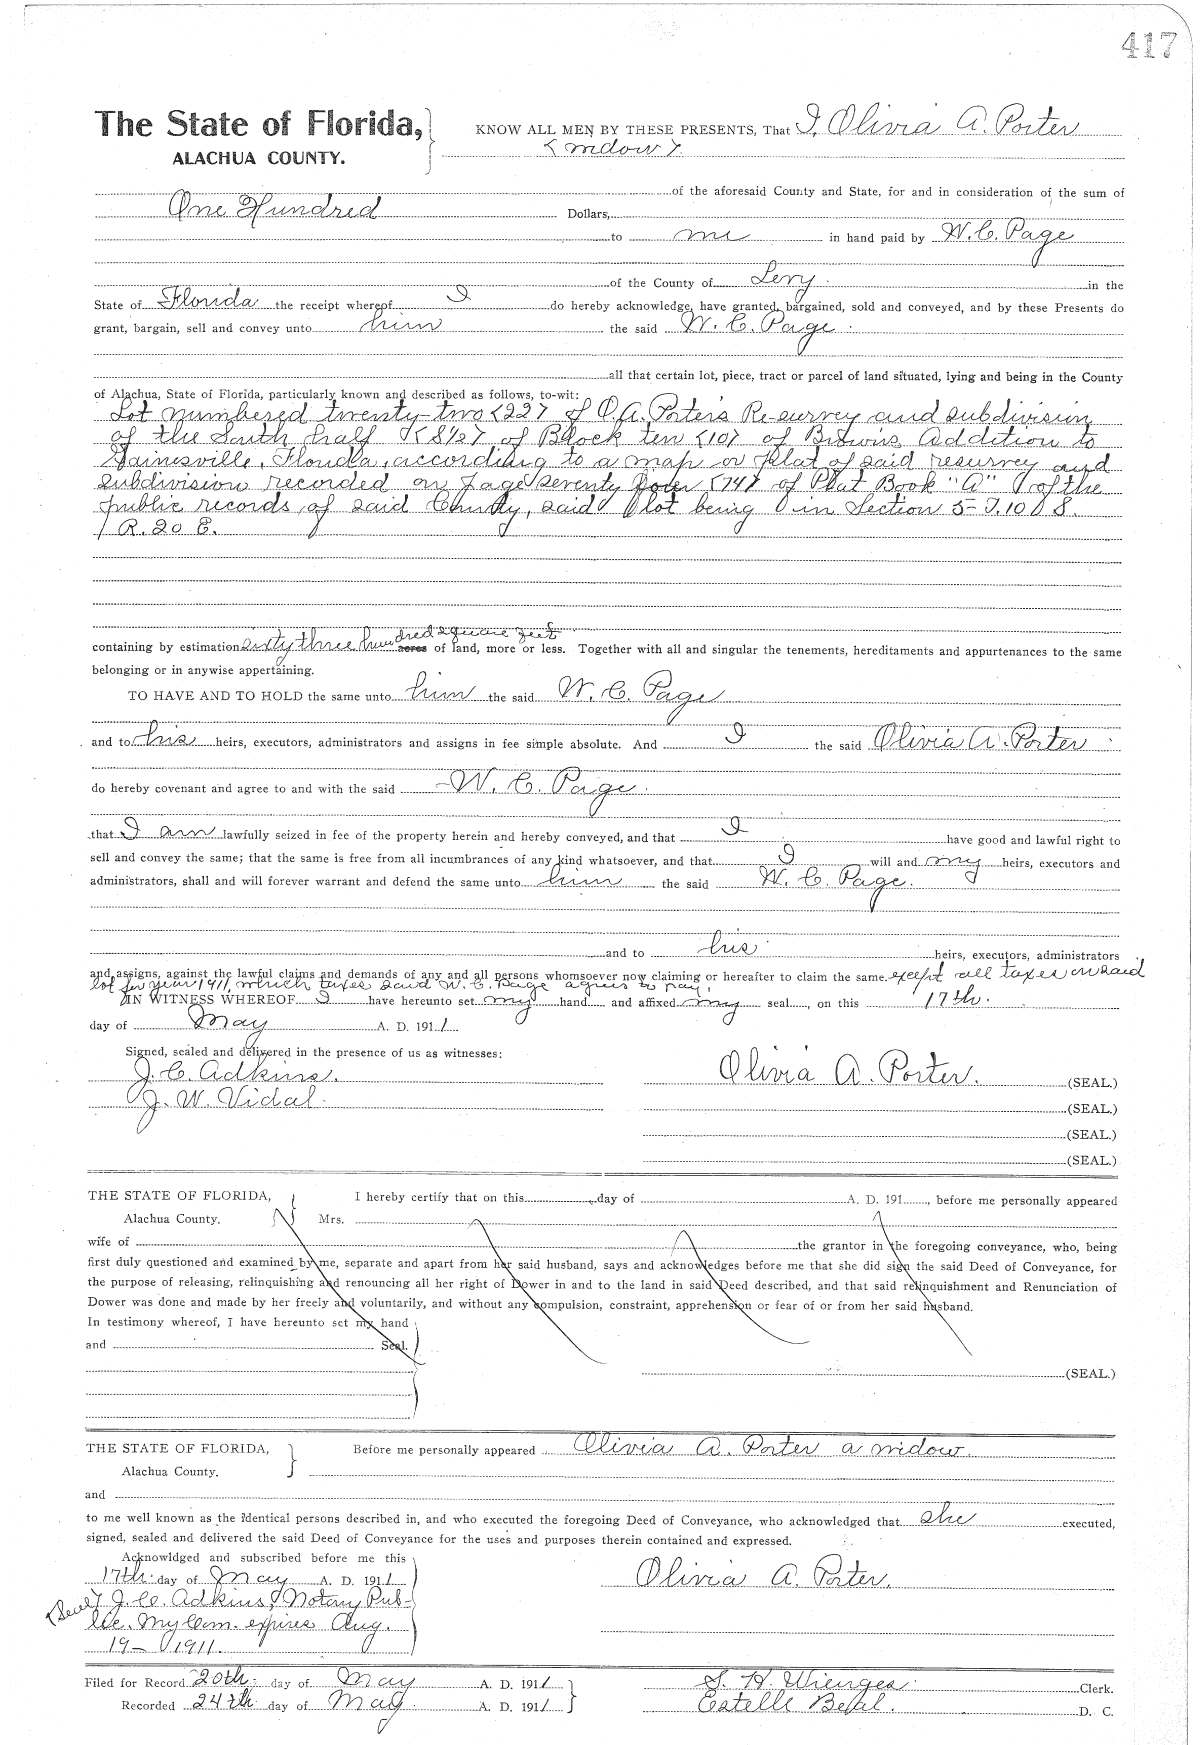 417
The State of Florida,
ALACHUA COUNTY.
KNOW ALL MEN BY THESE PRESENTS, That I, Olivia A. Porter
<widow>
of the aforesaid County and State, for and in consideration of the sum of
One Hundred Dollars,
to me in hand paid by W. C. Page
of the County of Levy in the
State of Florida the receipt whereof I do hereby acknowledge, have granted, bargained, sold and conveyed, and by these Presents do
grant, bargain, sell and convey unto him the said W. C. Page.
all that certain lot, piece, tract or parcel of land situated, lying and being in the County
of Alachua, State of Florida, particularly known and described as follows, to-wit:
Lot numbered twenty-two <22> of O. A. Porter's Re-survey and subdivision
of the South half <S½> of Block ten <10> of Browns Addition to
Gainesville, Florida, according to a map or plat of said resurvey and
subdivision recorded on page seventy four <74> of Plat Book "A" of the
public records of said County, said lot being in Section 5-T. 10 S.
R. 20 E.
containing by estimation sixty three hundred square feet acres of land, more or less. Together with all and singular the tenements, hereditaments and appurtenances to the same
belonging or in anywise appertaining.
TO HAVE AND TO HOLD the same unto him the said W. C. Page
and to his heirs, executors, administrators and assigns in fee simple absolute. And I the said Olivia A. Porter
do hereby covenant and agree to and with the said W. C. Page.
that I am lawfully seized in fee of the property herein and hereby conveyed, and that I have good and lawful right to
sell and convey the same; that the same is free from all incumbrances of any kind whatsoever, and that I will and my heirs, executors and
administrators, shall and will forever warrant and defend the same unto him the said W. C. Page.
and to his heirs, executors, administrators
and assigns, against the lawful claims and demands of any and all persons whomsoever now claiming or hereafter to claim the same except all taxes on said
lot for year 1911, which taxes said W. C. Page agrees to pay.
IN WITNESS WHEREOF I have hereunto set my hand and affixed my seal, on this 17th.
day of May A. D. 1911
Signed, sealed and delivered in the presence of us as witnesses:
J. C. Adkins.
J. W. Vidal.
Olivia A. Porter. (SEAL.)
(SEAL.)
(SEAL.)
(SEAL.)
THE STATE OF FLORIDA,
Alachua County.
I hereby certify that on this day of A. D. 191 , before me personally appeared
Mrs.
wife of the grantor in the foregoing conveyance, who, being
first duly questioned and examined by me, separate and apart from her said husband, says and acknowledges before me that she did sign the said Deed of Conveyance, for
the purpose of releasing, relinquishing and renouncing all her right of Dower in and to the land in said Deed described, and that said relinquishment and Renunciation of
Dower was done and made by her freely and voluntarily, and without any compulsion, constraint, apprehension or fear of or from her said husband.
In testimony whereof, I have hereunto set my hand
and Seal.
(SEAL.)
THE STATE OF FLORIDA,
Alachua County.
Before me personally appeared Olivia A. Porter a widow.
and
to me well known as the identical persons described in, and who executed the foregoing Deed of Conveyance, who acknowledged that she executed,
signed, sealed and delivered the said Deed of Conveyance for the uses and purposes therein contained and expressed.
Acknowldged and subscribed before me this
17th. day of May A. D. 1911
<Seal> J. C. Adkins, Notary Pub-
lic. My Com. expires Aug.
19- 1911.
Olivia A. Porter.
Filed for Record 20th. day of May A. D. 1911
Recorded 24th. day of May A. D. 1911
S. H. Wienges. Clerk.
Estelle D. C.